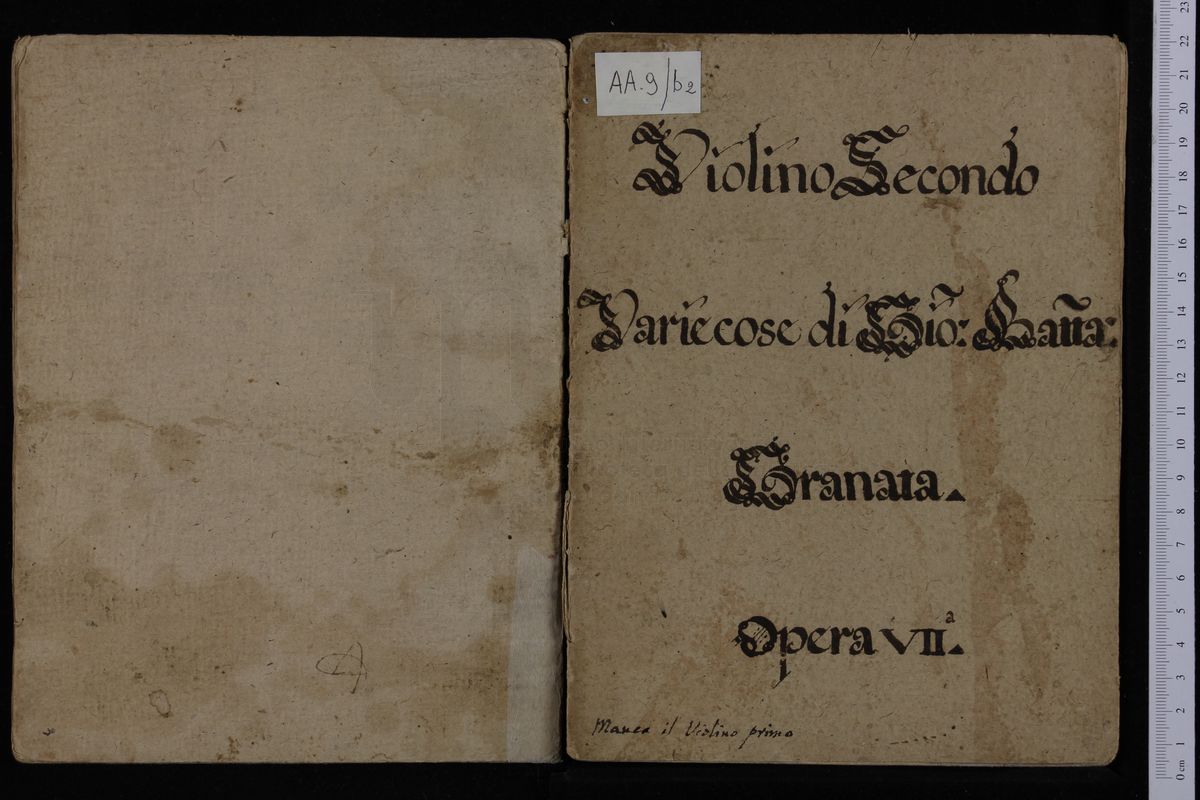 AA.9/b2
Violino Secondo
Varie cose di Gio: Batta:
Granata.
Opera VIIa.
Manca il Violino primo
23
22
21
20
19
18
17
16
15
14
13
12
11
10
9
8
7
6
5
4
3
2
1
0 cm